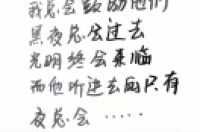 我总会鼓励他们
黑夜总会过去
光明终会来临
而他听进去的只有
夜总会 ·····